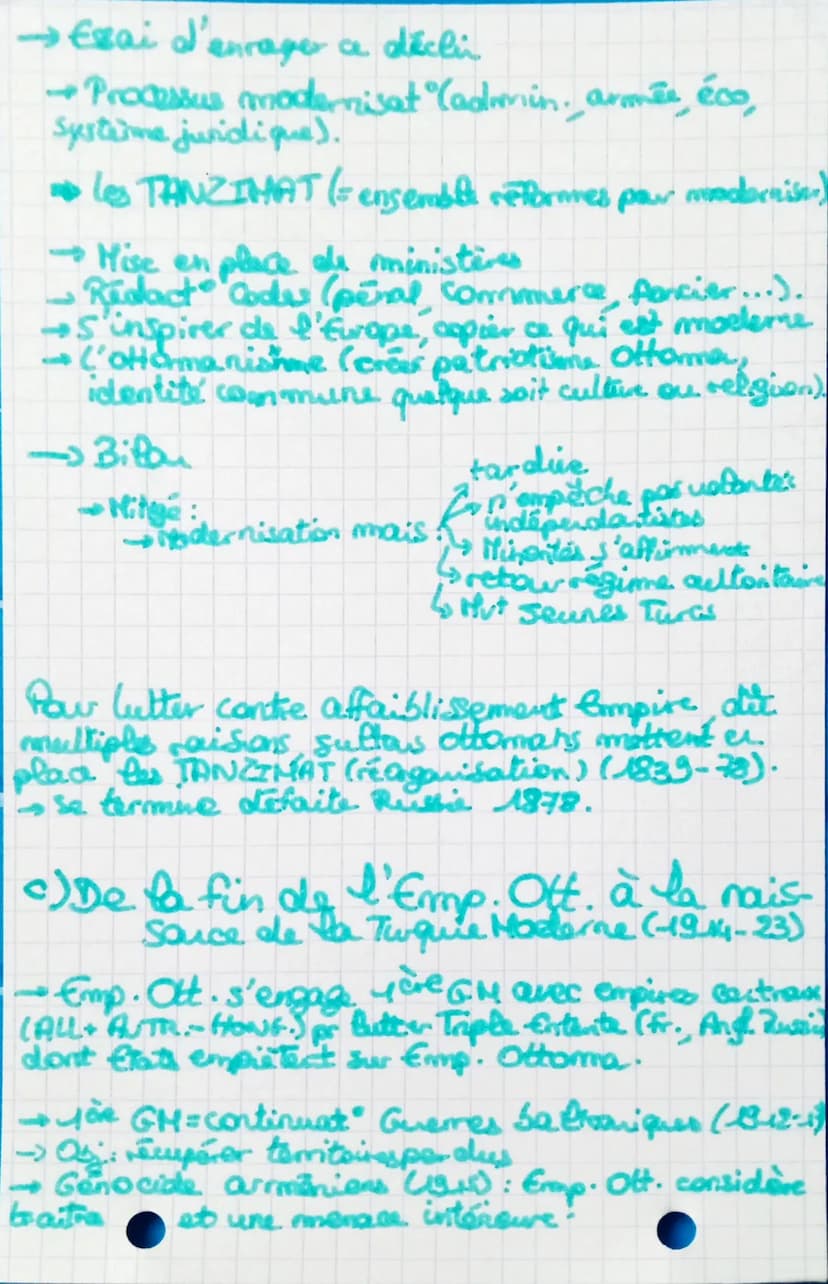 → Essai d'enrager ce déclin
→ Processus modernisat° (admin., armée, éco,
système juridique).
→ les TANZIMAT (= ensemble réformes pour moderniser)
→ Mise en place de ministères
→ Rédact° Codes (pénal, commerce, foncier...).
→ S'inspirer de l'Europe, copier ce qui est moderne
→ L'ottomanisme (créer patriotisme Ottoman,
identité commune quelque soit culture ou religion).
→ Bilan
→ Mitigé:
→ Modernisation mais:
tardive
→ n'empêche pas volontés
indépendantistes
→ Minorités s'affirment
→ retour régime autoritaire
→ Mvt Jeunes Turcs
Pour lutter contre affaiblissement Empire, dû
multiples raisons, sultans ottomans mettent en
place les TANZIMAT (réorganisation) (1839-78).
→ Se termine défaite Russie 1878.
c) De la fin de l'Emp. Ott. à la nais-
sance de la Turquie Moderne (1914-23)
→ Emp. Ott. s'engage 1ère GM avec empires centraux
(ALL + AUTR.-HONG.) pr lutter Triple Entente (Fr., Angl.
dont États empiètent sur Emp. Ottoman.
→ 1ère GM = continuat° Guerres balkaniques
→ Obj: récupérer territoires perdus
→ Génocide arméniens (1915) : Emp. Ott. considère
traitre et une menace intérieure.